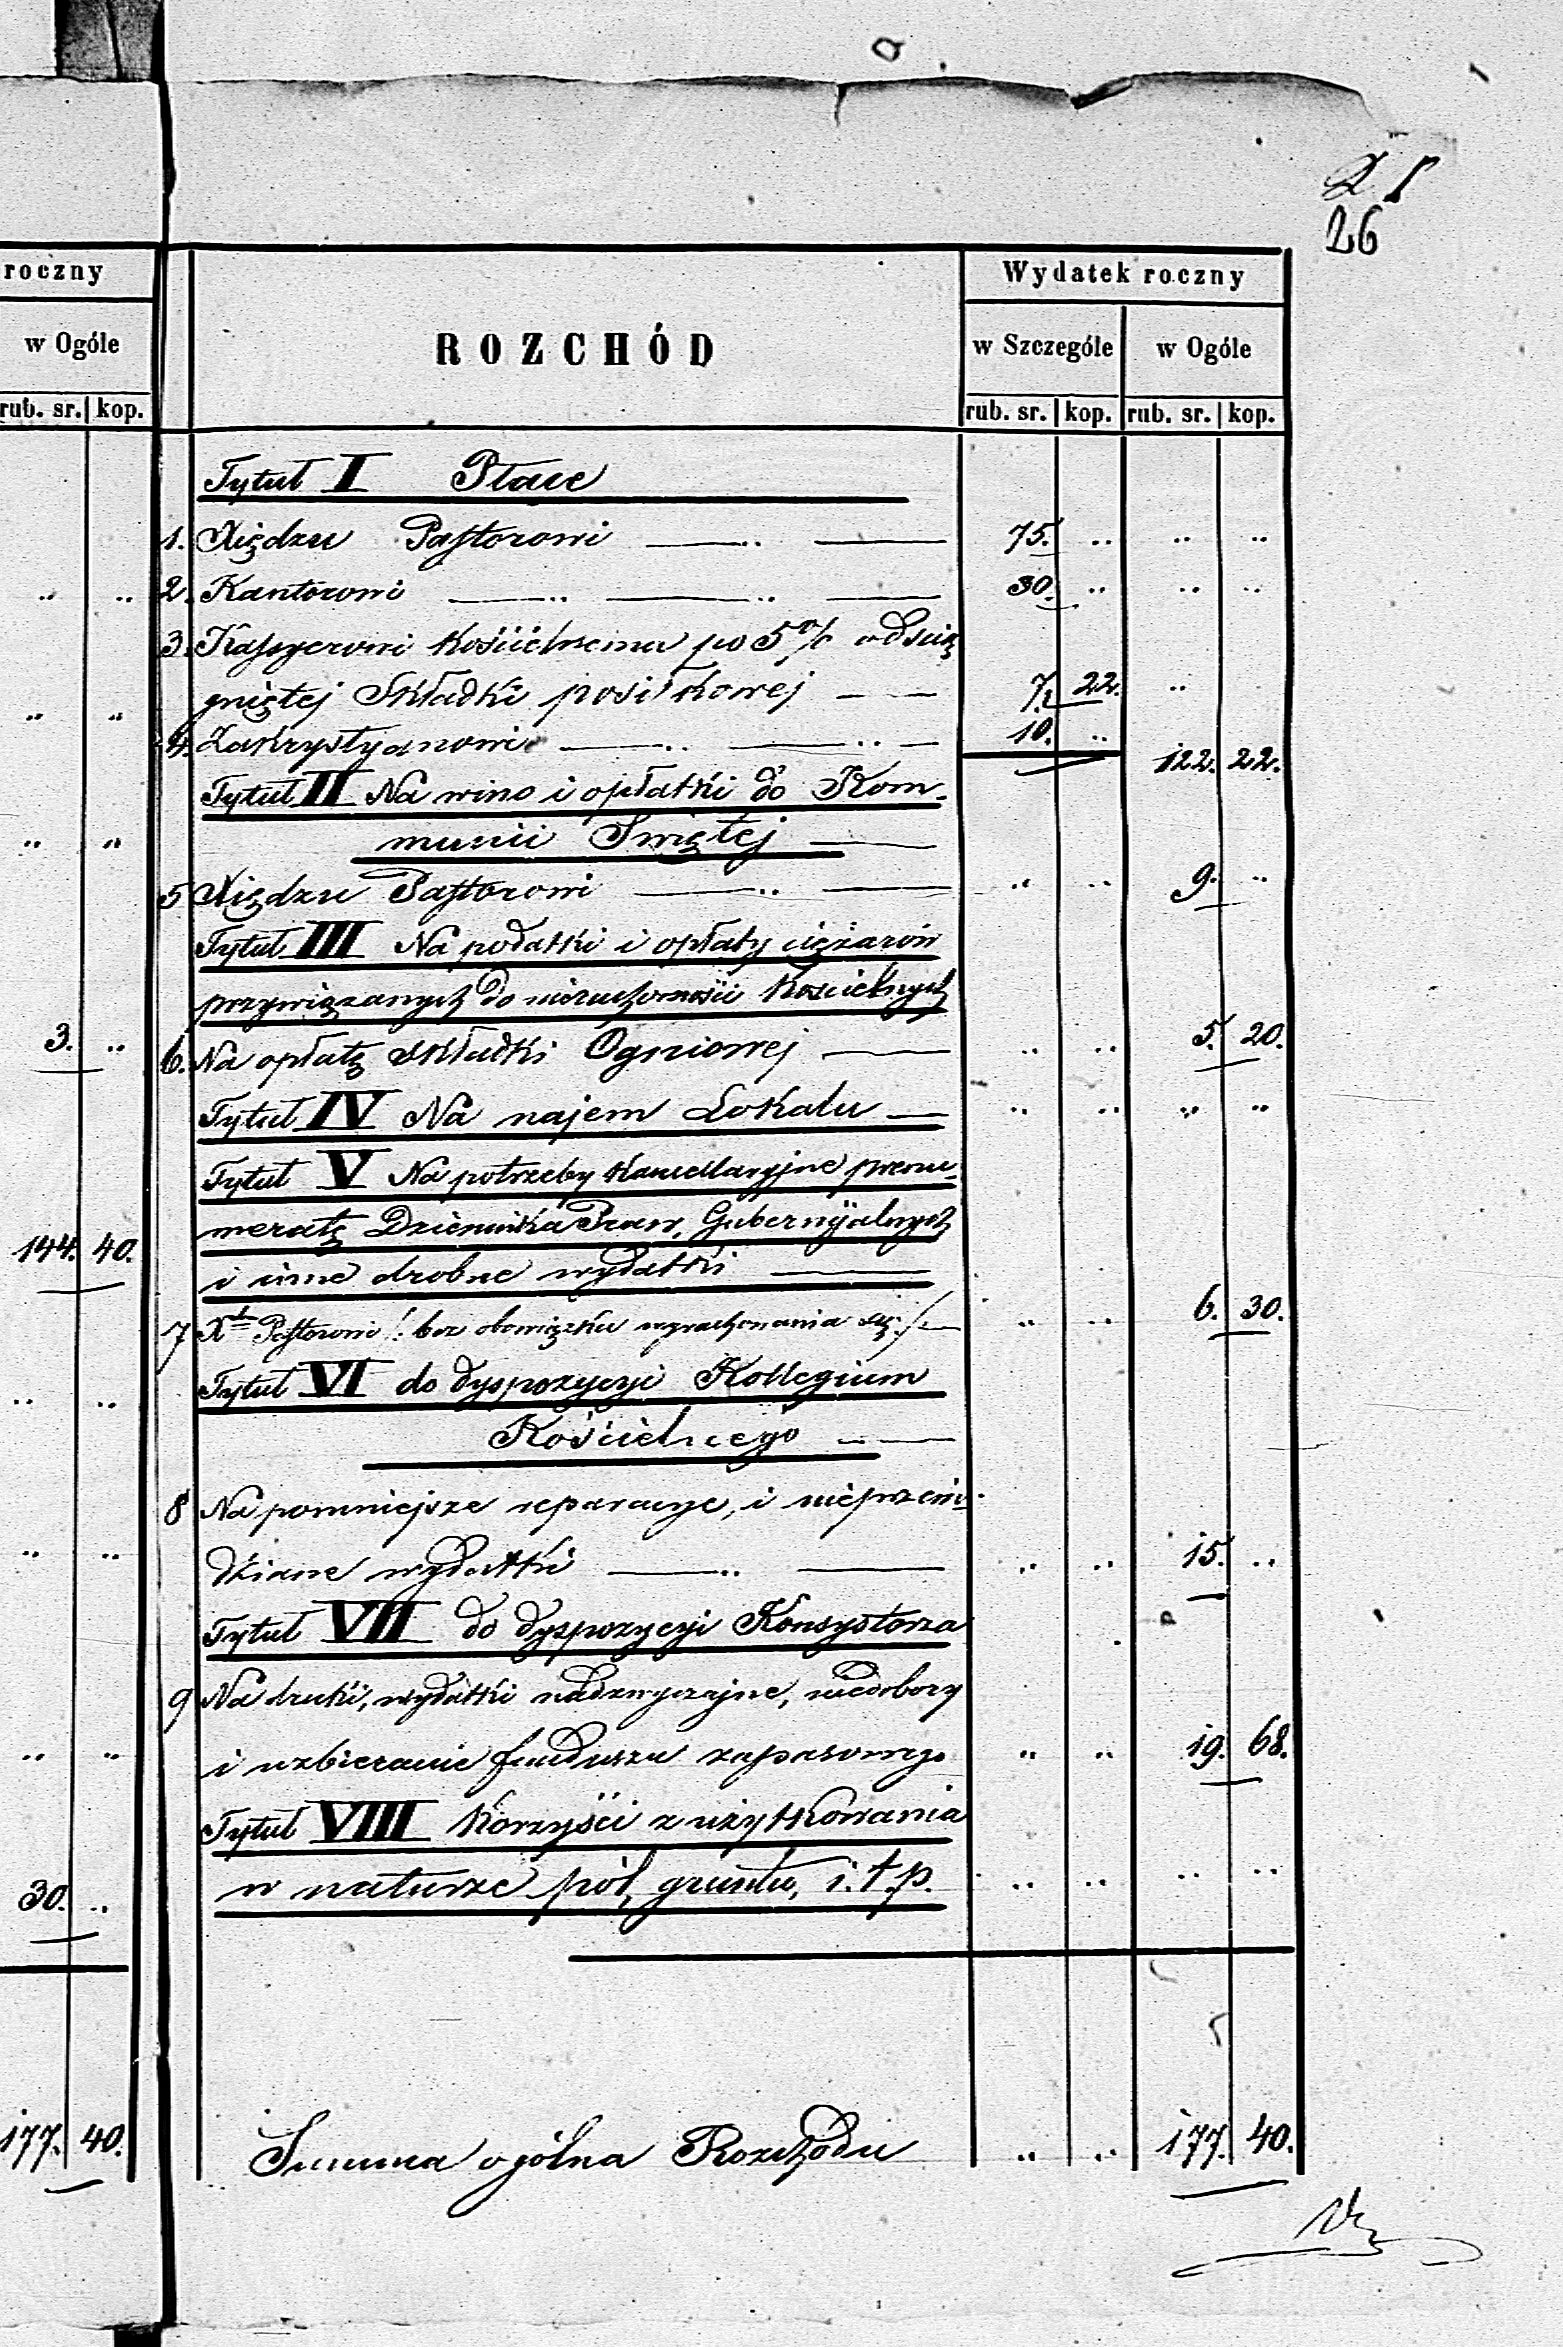 26
roczny
w Ogóle
rub. sr. kop.
ROZCHÓD
Wydatek roczny
w Szczególe w Ogóle
rub. sr. kop. rub. sr. kop.
Tytuł I Płace
1. Xiędzu Pastorowi 75. " " "
" " 2. Kantorowi 30. " " "
3. Kassyerowi kościelnemu po 5% od ścią
" " gniętej Składki posiłkowej 7. 22. "
4. Zakrystyanowi 10. " 122. 22.
Tytuł II Na wino i opłatki do Kom-
" " munii Swiętej
5 Xiędzu Pastorowi " " 9. "
Tytuł III Na podatki i opłaty ciężarów
przywiązanych do nieruchomości Kościelnych
3. " 6. Na opłatę Składki Ogniowej " " 5. 20.
Tytuł IV Na najem Lokalu " " " "
Tytuł V Na potrzeby Kancellaryjne prenu-
144. 40. meratę Dziennika Praw, Gubernijalnych
i inne drobne wydatki
7 Xdu Pastorowi /: bez obowiązku wyrachowania się :/ " " 6. 30.
" " Tytuł VI do dyspozycyi Kollegium
Kościelnego
8 Na pomniejsze reparacye, i nieprzewi-
" " dziane wydatki " " 15. "
Tytuł VII do dyspozycyi Konsystorza
9 Na druki, wydatki nadzwyczajne, niedobory
" " i uzbieranie funduszu zapasowego " " 19. 68.
Tytuł VIII Korzyści z użytkowania
30. " w naturze pól, gruntu, i.t.p. " " " "
177. 40. Summa ogólna Rozchodu " " 177. 40.